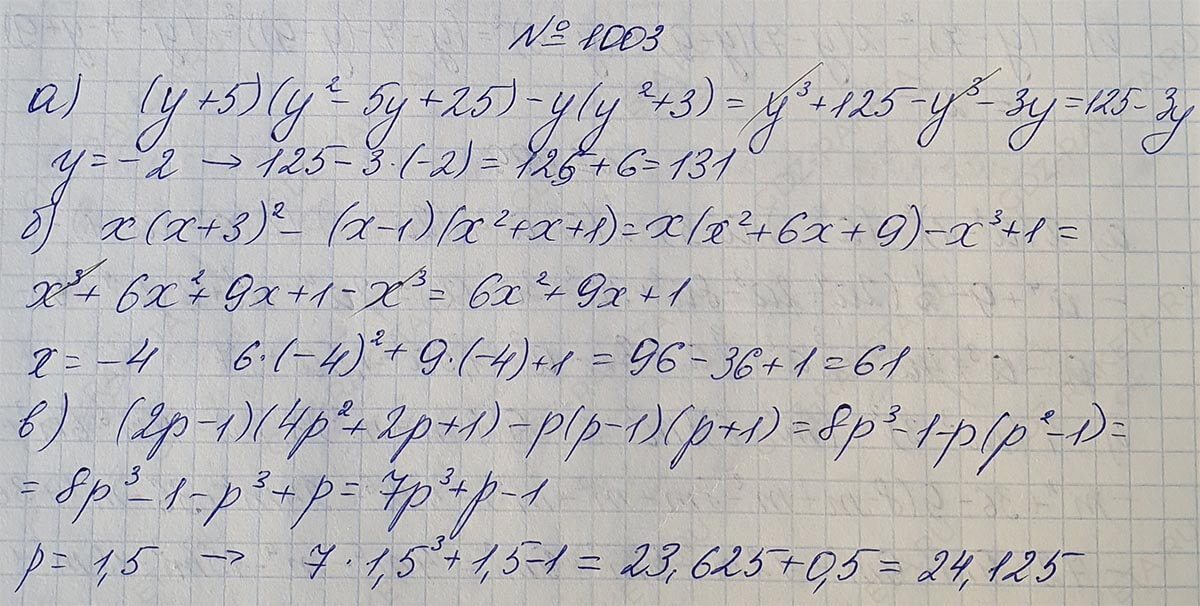 № 1003
а) (y+5)(y²-5y+25)-y(y²+3)=y³+125-y³-3y=125-3y
y=-2 → 125-3·(-2)=125+6=131
б) x(x+3)²-(x-1)(x²+x+1)=x(x²+6x+9)-x³+1=
x³+6x²+9x+1-x³=6x²+9x+1
x=-4 6·(-4)²+9·(-4)+1=96-36+1=61
в) (2p-1)(4p²+2p+1)-p(p-1)(p+1)=8p³-1-p(p²-1)=
=8p³-1-p³+p=7p³+p-1
p=1,5 → 7·1,5³+1,5-1=23,625+0,5=24,125